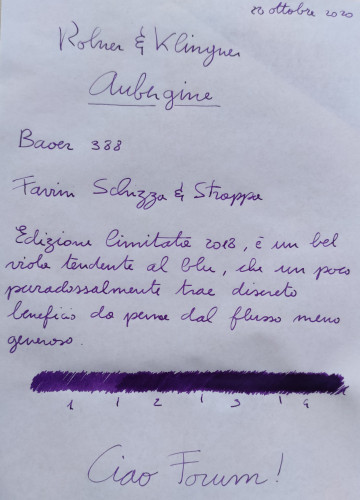 20 ottobre 2020
Rohrer & Klingner
Aubergine
Baoer 388
Favini Schizza & Strappa
Edizione limitata 2018, è un bel
viola tendente al blu, che un poco
paradossalmente trae discreto
beneficio da penne dal flusso meno
generoso.
1 | 2 | 3 | 4
Ciao Forum!